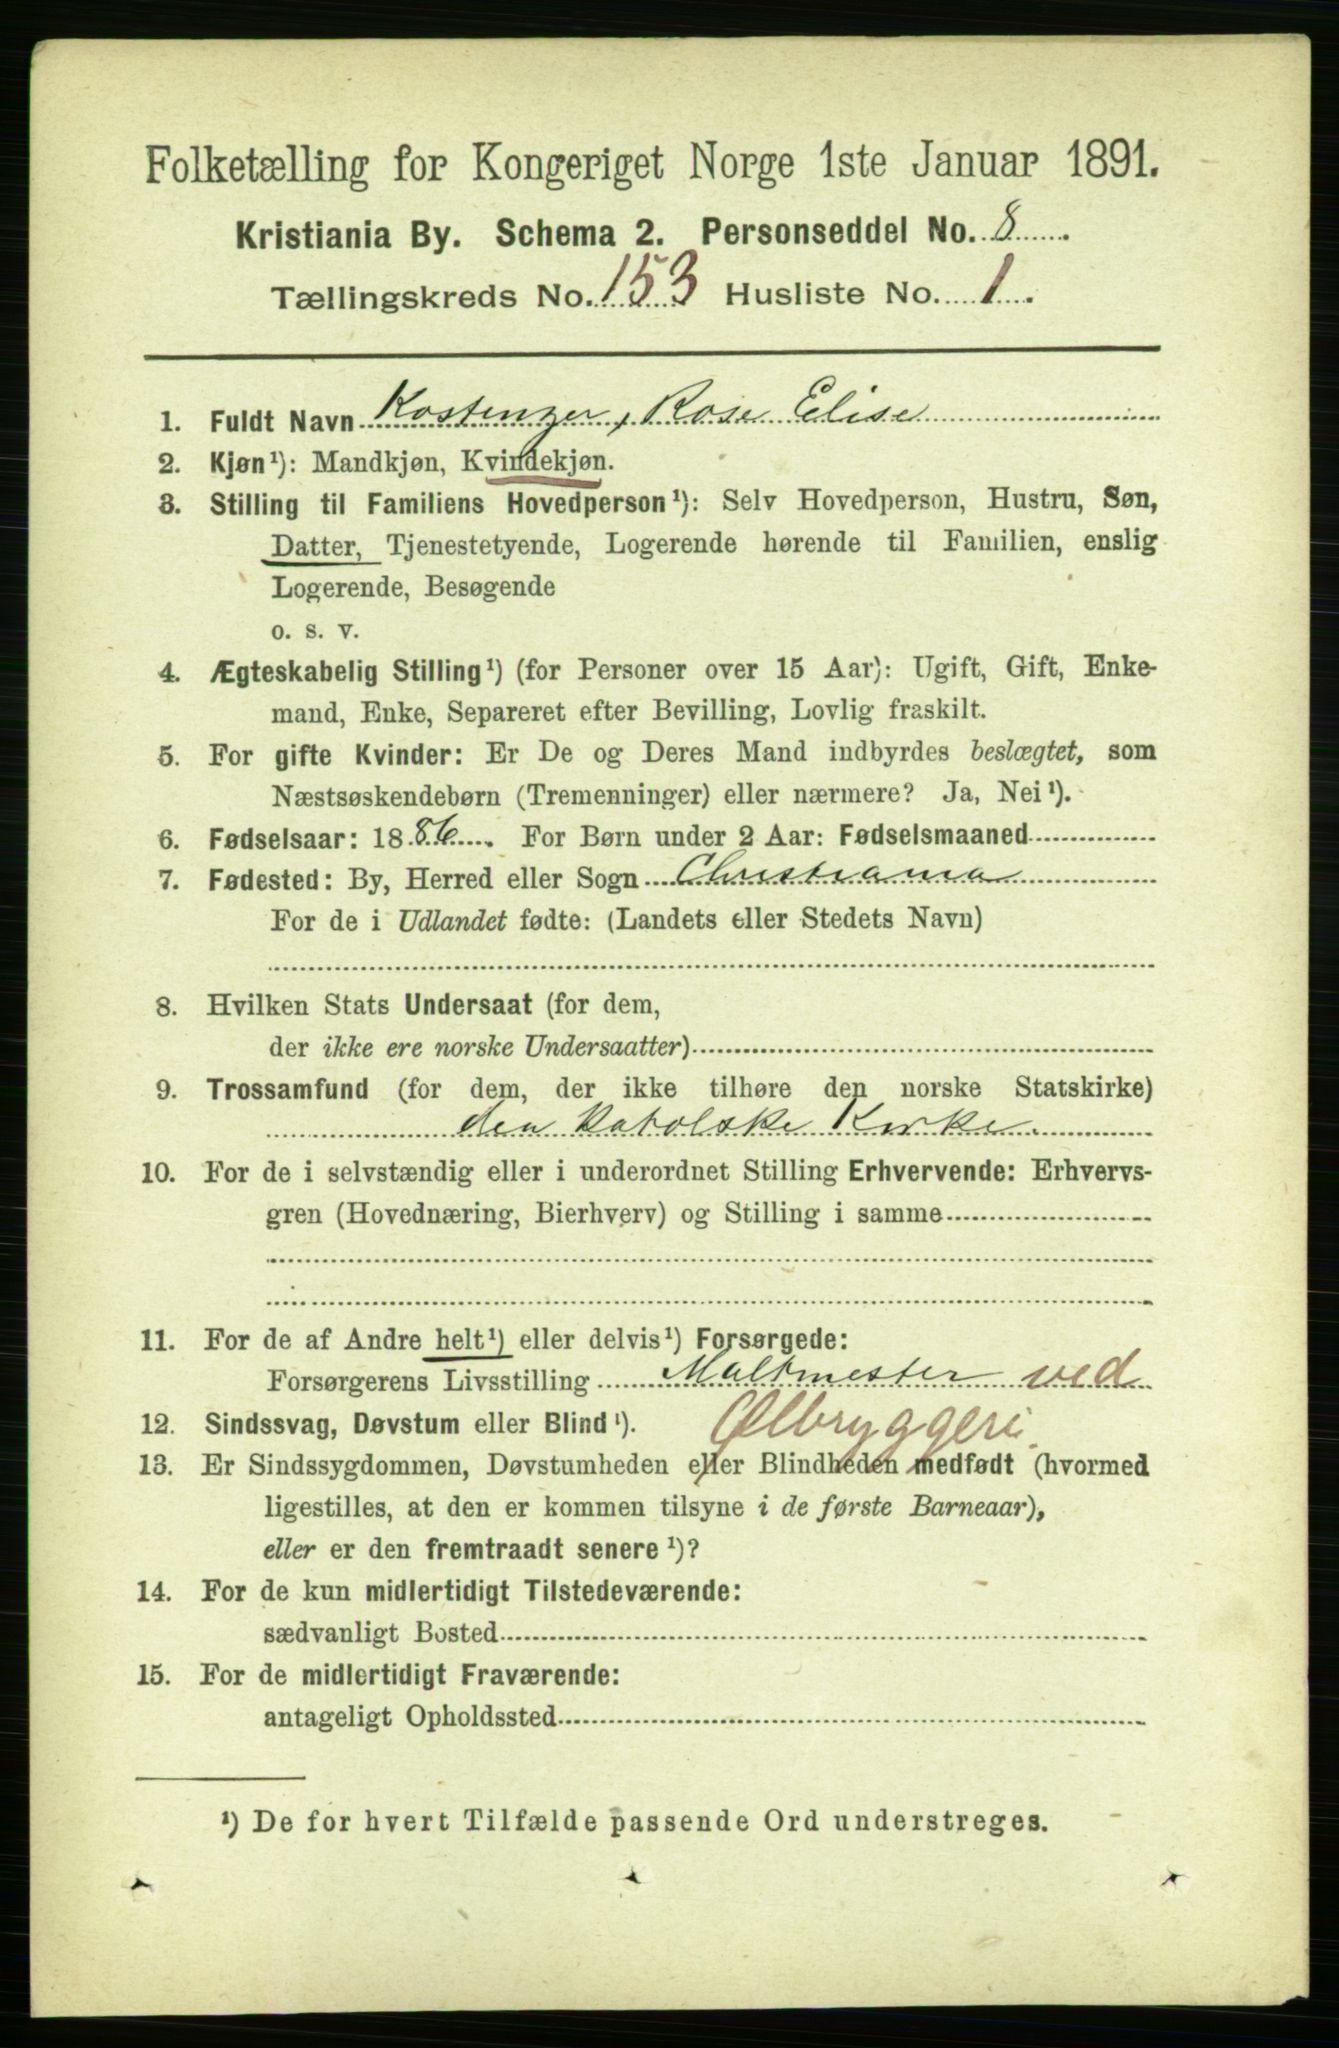 Folketælling for Kongeriget Norge 1ste Januar 1891.
Kristiania By. Schema 2. Personseddel No. 8
Tællingskreds No. 153 Husliste No. 1.
1. Fuldt Navn Kostenzer, Rosa Elise
2. Kjøn¹): Mandkjøn, Kvindekjøn.
3. Stilling til Familiens Hovedperson¹): Selv Hovedperson, Hustru, Søn,
Datter, Tjenestetyende, Logerende hørende til Familien, enslig
Logerende, Besøgende
o. s. v.
4. Ægteskabelig Stilling¹) (for Personer over 15 Aar): Ugift, Gift, Enke-
mand, Enke, Separeret efter Bevilling, Lovlig fraskilt.
5. For gifte Kvinder: Er De og Deres Mand indbyrdes beslægtet, som
Næstsøskendebørn (Tremenninger) eller nærmere? Ja, Nei¹).
6. Fødselsaar: 1886. For Børn under 2 Aar: Fødselsmaaned
7. Fødested: By, Herred eller Sogn Christiania
For de i Udlandet fødte: (Landets eller Stedets Navn)
8. Hvilken Stats Undersaat (for dem,
der ikke ere norske Undersaatter)
9. Trossamfund (for dem, der ikke tilhøre den norske Statskirke)
den katolske Kirke.
10. For de i selvstændig eller i underordnet Stilling Erhvervende: Erhvervs-
gren (Hovednæring, Bierhverv) og Stilling i samme
11. For de af Andre helt¹) eller delvis¹) Forsørgede:
Forsørgerens Livsstilling Maltmester ved
12. Sindssvag, Døvstum eller Blind¹). Ølbryggeri
13. Er Sindssygdommen, Døvstumheden eller Blindheden medfødt (hvormed
ligestilles, at den er kommen tilsyne i de første Barneaar),
eller er den fremtraadt senere¹)?
14. For de kun midlertidigt Tilstedeværende:
sædvanligt Bosted
15. For de midlertidigt Fraværende:
antageligt Opholdssted
¹) De for hvert Tilfælde passende Ord understreges.